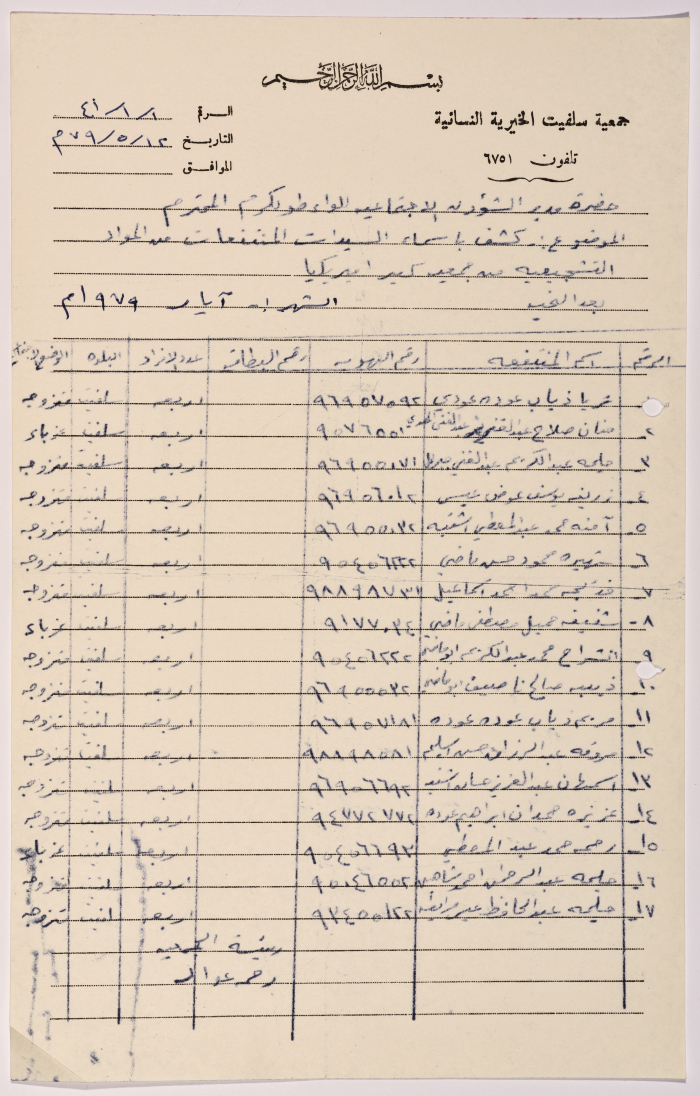 بسم الله الرحمن الرحيم
جمعية سلفيت الخيرية النسائية
تلفون ٦٧٥١
الرقم ٤١/١/١
التاريخ ٧٩/٥/١٢م
الموافق
حضرة مدير الشؤون الاجتماعيه للواء طولكرم المحترم
الموضوع :. كشف باسماء السيدات المنتفعات من المواد
التشجيعيه من جمعية كير امريكيا
بعد التحيه الشهر :. آيار ٩٧٩ام
الرقم اسم المنتفعه رقم الهويه رقم البطاقه عدد الافراد البلده
ثريا ذياب عوده عودي ٩٦٩٥٧٥٩٢ اربعه سلفيت متزوجه
٢- حنان صلاح اربعه سلفيت عزباء
٣ حليمه عبد الكريم عبد الغني ٩٦٩٥٥٠٧١ اربعه سلفيت متزوجه
٤- يوسف عوض اربعه سلفيت متزوجه
٥- آمنه محمد عبد المعطي اشتيه ٩٦٩٥٥٠٣٢ اربعه سلفيت متزوجه
٦ شهيره محمود حسن ماضي ٩٥٤٥٦٢٢٢ اربعه سلفيت متزوجه
٧- خديجه محمد احمد اسماعيل ٩٨٨٩٨٧٣٢ اربعه سلفيت متزوجه
٨- شفيقه جميل مصطفى ماضي ٩١٧٧٠٣٤ اربعه سلفيت عزباء
٩ انشراح محمد عبد الكريم ابو ماضي ٩٥٤٥٦٢٢٢ اربعه سلفيت متزوجه
١٠- ذيبه صالح ناصيف ابو ماضي ٩٦٩٥٥٥٣٢ اربعه سلفيت متزوجه
١١- مريم ذياب عوده عوده ٩٦٩٥٧١٨١ اربعه سلفيت متزوجه
١٢- عبد الرزاق حسن ٩٨٨٩٨٥٨١ اربعه سلفيت متزوجه
١٣- اسمهان عبد العزيز اشتيه ٩٦٩٥٦٦٩٢ اربعه سلفيت متزوجه
١٤- عزيزه حمدان ابراهيم عوده ٩٤٧٧٢٧٧٢ اربعه سلفيت متزوجه
١٥- رحمه محمد عبد المعطي ٩٥٤٥٦٦٩٣ اربعه سلفيت عزباء
١٦- حليمه عبد الرحمن احمد شاهين ٩٥٠٤٦٥٥٢ اربعه سلفيت متزوجه
١٧- حليمه عبد الحافظ ٩٣٤٥٥١٢٢ اربعه سلفيت متزوجه
رئيسة الجمعيه